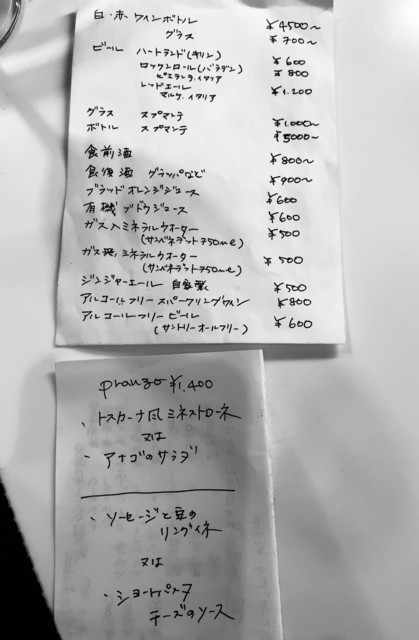 白・赤 ワインボトル ¥4500〜
グラス ¥700〜
ビール ハートランド(キリン) ¥600
ロックンロール(バラデン) ¥800
ピエモンテ、イタリア
レッドエール ¥1,200
マルケ、イタリア
グラス スプマンテ ¥1,000〜
ボトル スプマンテ ¥5000〜
食前酒 ¥800〜
食後酒 グラッパなど ¥900〜
ブラッドオレンジジュース ¥600
有機ブドウジュース ¥600
ガス入ミネラルウオーター ¥500
(サンベネデット750ml)
ガス無ミネラルウオーター ¥500
(サンベネデット750ml)
ジンジャーエール 自家製 ¥500
アルコールフリー スパークリングワイン ¥800
アルコールフリー ビール ¥600
(サントリーオールフリー)
pranzo ¥1,400
・トスカーナ風ミネストローネ
又は
・アナゴのサラダ
・ソーセージと豆の
リングイネ
又は
・ショートパスタ
チーズのソース